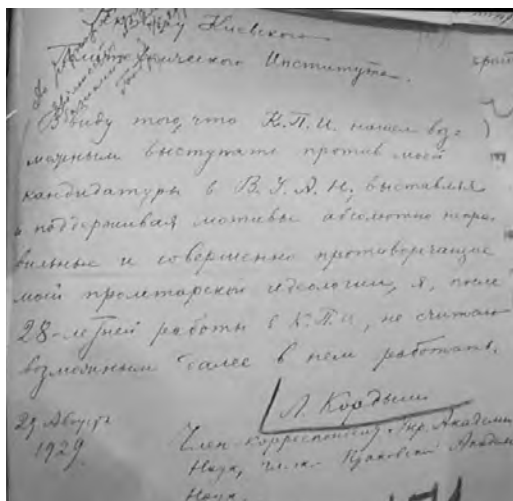 Киевского
Политехнического Института.
Ввиду того, что К.П.И. нашел воз-
можным выступать против моей
кандидатуры в В.У.А.Н., выставляя
и поддерживая мотивы абсолютно непра-
вильные и совершенно противоречащие
моей пролетарской идеологии, я, после
28-летней работы в К.П.И, не считаю
возможным далее в нем работать.
Л. Кордыш
29 Август
1929.
Член-корреспондент Укр. Академии
Наук, член Краковской Академ
Наук.